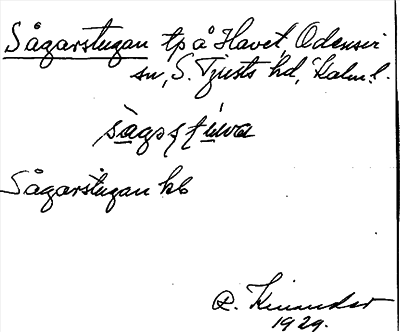 Sågarstugan tp å Havet, Odensvi
sn, S. Tjusts hd, Kalm. l.
sågsstúva
Sågarstugan kb
R. Kinander
1929.